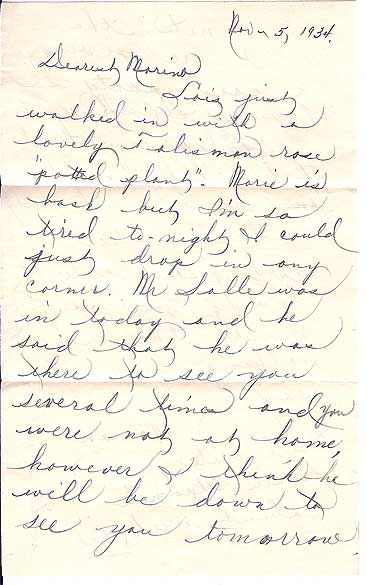 Nov. 5, 1934.
Dearest Marino
Lois just
walked in with a
lovely Talisman rose
"potted plant". Marie is
back but I'm so
tired to-night I could
just drop in any
corner. Mr Salle was
in today and he
said that he was
there to see you
several times and you
were not at home,
however I think he
will be down to
see you tomorrow